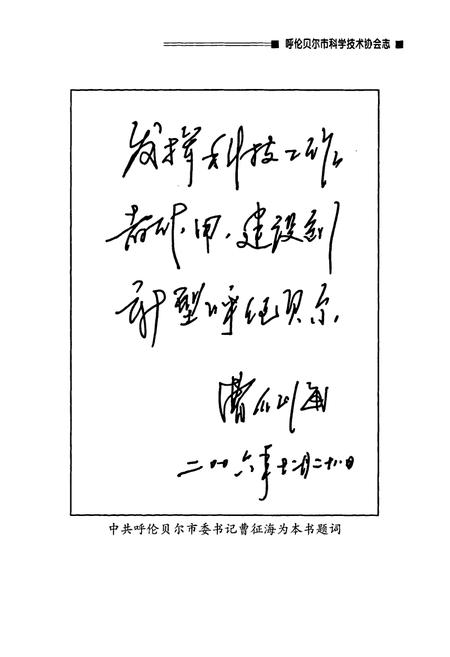 ■ 呼伦贝尔市科学技术协会志 ■
发挥科技工作
者作用,建设创
新型呼伦贝尔.
曹征海
二〇〇六年十二月二十八日
中共呼伦贝尔市委书记曹征海为本书题词